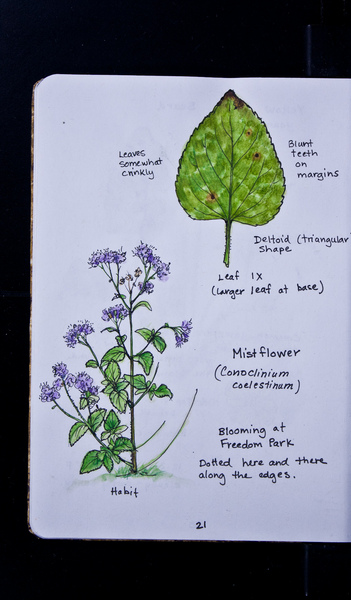 Leaves
somewhat
crinkly
Blunt
teeth
on
margins
Deltoid (triangular
shape
Leaf 1X
(larger leaf at base)
Mistflower
(Conoclinium
coelestinum)
Blooming at
Freedom Park
Dotted here and there
along the edges.
Habit
21